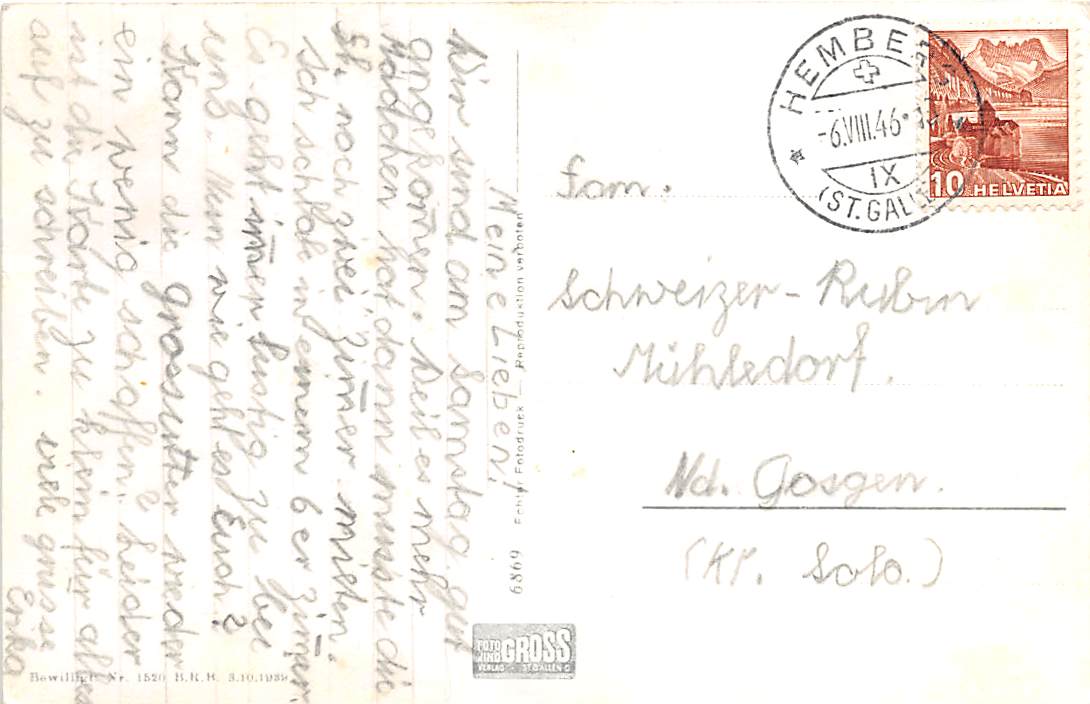 Meine Lieben!
Wir sind am Samstag gut
angekom̄en. Weil es mehr
Mädchen hat dann musste die
St. noch zwei Zim̄er mieten.
Ich schlafe in einem 6er Zim̄er.
Es geht im̄er lustig zu bei
uns. Nun wie geht es Euch?
Kann die grossmutter wieder
ein wenig schaffen? Leider
ist die Karte zu klein für alles
auf zu schreiben. viele grüsse
Erika
Bewilligt Nr. 1520 B.R.B. 3.10.1939
6869 Echter Fotodruck — Reproduktion verboten
FOTO UND VERLAG GROSS ST. GALLEN
HEMBERG
-6.VIII.46
IX
(ST. GALLEN)
10 HELVETIA
Fam.
Schweizer-Rubin
Mühledorf.
Nd. Gösgen.
(Kt. Solo.)